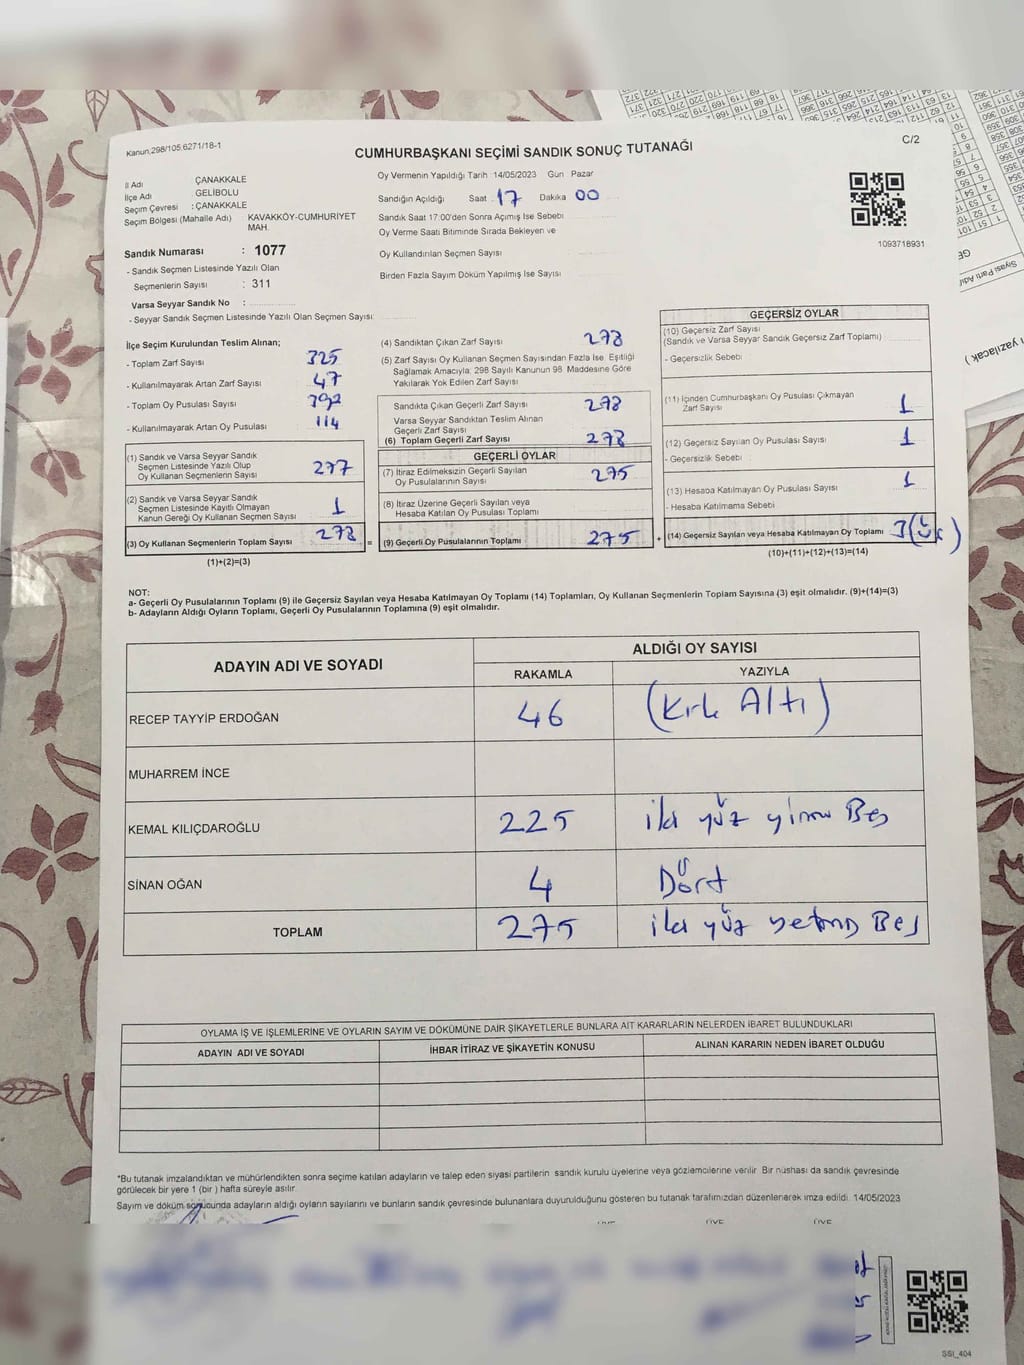 Kanun.298/105.6271/18-1
CUMHURBAŞKANI SEÇİMİ SANDIK SONUÇ TUTANAĞI
C/2
İl Adı ÇANAKKALE
İlçe Adı : GELİBOLU
Seçim Çevresi : ÇANAKKALE
Seçim Bölgesi (Mahalle Adı) KAVAKKÖY-CUMHURİYET
MAH.
Sandık Numarası : 1077
- Sandık Seçmen Listesinde Yazılı Olan
Seçmenlerin Sayısı : 311
Varsa Seyyar Sandık No :
- Seyyar Sandık Seçmen Listesinde Yazılı Olan Seçmen Sayısı:
Oy Vermenin Yapıldığı Tarih :14/05/2023 Gün Pazar
Sandığın Açıldığı Saat 17 Dakika 00
Sandık Saat 17:00'den Sonra Açılmış İse Sebebi
Oy Verme Saati Bitiminde Sırada Bekleyen ve
Oy Kullandırılan Seçmen Sayısı
Birden Fazla Sayım Döküm Yapılmış İse Sayısı
1093718931
İlçe Seçim Kurulundan Teslim Alınan;
- Toplam Zarf Sayısı 325
- Kullanılmayarak Artan Zarf Sayısı 47
- Toplam Oy Pusulası Sayısı 392
- Kullanılmayarak Artan Oy Pusulası 114
(1) Sandık ve Varsa Seyyar Sandık
Seçmen Listesinde Yazılı Olup
Oy Kullanan Seçmenlerin Sayısı 277
(2) Sandık ve Varsa Seyyar Sandık
Seçmen Listesinde Kayıtlı Olmayan
Kanun Gereği Oy Kullanan Seçmen Sayısı 1
(3) Oy Kullanan Seçmenlerin Toplam Sayısı 278 =
(1)+(2)=(3)
(4) Sandıktan Çıkan Zarf Sayısı 278
(5) Zarf Sayısı Oy Kullanan Seçmen Sayısından Fazla İse, Eşitliği
Sağlamak Amacıyla; 298 Sayılı Kanunun 98. Maddesine Göre
Yakılarak Yok Edilen Zarf Sayısı
Sandıkta Çıkan Geçerli Zarf Sayısı 278
Varsa Seyyar Sandıktan Teslim Alınan
Geçerli Zarf Sayısı
(6) Toplam Geçerli Zarf Sayısı 278
GEÇERLİ OYLAR
(7) İtiraz Edilmeksizin Geçerli Sayılan
Oy Pusulalarının Sayısı 275
(8) İtiraz Üzerine Geçerli Sayılan veya
Hesaba Katılan Oy Pusulası Toplamı
(9) Geçerli Oy Pusulalarının Toplamı 275 +
GEÇERSİZ OYLAR
(10) Geçersiz Zarf Sayısı
(Sandık ve Varsa Seyyar Sandık Geçersiz Zarf Toplamı)
- Geçersizlik Sebebi
(11) İçinden Cumhurbaşkanı Oy Pusulası Çıkmayan
Zarf Sayısı 1
(12) Geçersiz Sayılan Oy Pusulası Sayısı 1
- Geçersizlik Sebebi
(13) Hesaba Katılmayan Oy Pusulası Sayısı 1
- Hesaba Katılmama Sebebi
(14) Geçersiz Sayılan veya Hesaba Katılmayan Oy Toplamı 3 (Üç)
(10)+(11)+(12)+(13)=(14)
NOT:
a- Geçerli Oy Pusulalarının Toplamı (9) ile Geçersiz Sayılan veya Hesaba Katılmayan Oy Toplamı (14) Toplamları, Oy Kullanan Seçmenlerin Toplam Sayısına (3) eşit olmalıdır. (9)+(14)=(3)
b- Adayların Aldığı Oyların Toplamı, Geçerli Oy Pusulalarının Toplamına (9) eşit olmalıdır.
ADAYIN ADI VE SOYADI
ALDIĞI OY SAYISI
RAKAMLA YAZIYLA
RECEP TAYYİP ERDOĞAN 46 (Kırk Altı)
MUHARREM İNCE
KEMAL KILIÇDAROĞLU 225 iki yüz yirmi Beş
SİNAN OĞAN 4 Dört
TOPLAM 275 iki yüz yetmiş Beş
OYLAMA İŞ VE İŞLEMLERİNE VE OYLARIN SAYIM VE DÖKÜMÜNE DAİR ŞİKAYETLERLE BUNLARA AİT KARARLARIN NELERDEN İBARET BULUNDUKLARI
ADAYIN ADI VE SOYADI İHBAR İTİRAZ VE ŞİKAYETİN KONUSU ALINAN KARARIN NEDEN İBARET OLDUĞU
*Bu tutanak imzalandıktan ve mühürlendikten sonra seçime katılan adayların ve talep eden siyasi partilerin sandık kurulu üyelerine veya gözlemcilerine verilir. Bir nüshası da sandık çevresinde
görülecek bir yere 1 (bir) hafta süreyle asılır.
Sayım ve döküm sonucunda adayların aldığı oyların sayılarını ve bunların sandık çevresinde bulunanlara duyurulduğunu gösteren bu tutanak tarafımızdan düzenlenerek imza edildi. 14/05/2023
ÜYE ÜYE ÜYE
SSI_404